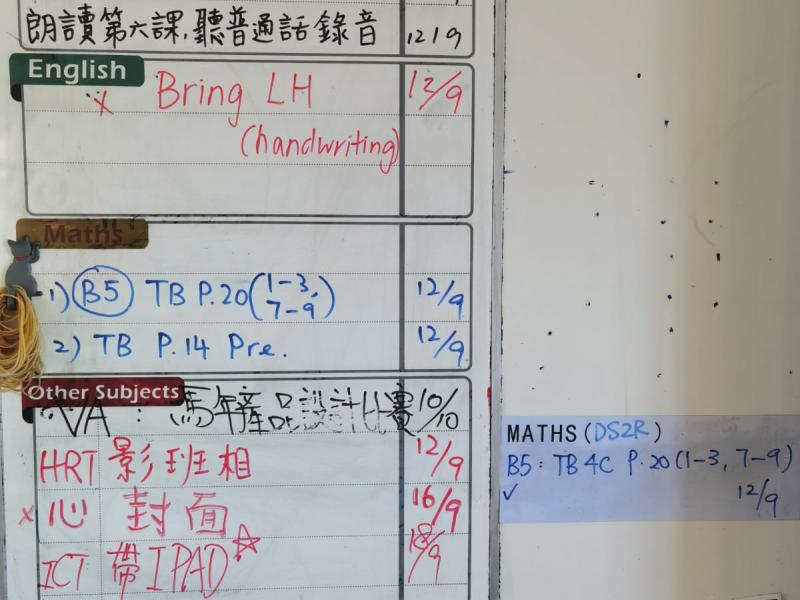 朗讀第六課,聽普通話錄音 12/9
English
x Bring LH 12/9
(handwriting)
Maths
1) B5 TB P.20(1-3, 7-9) 12/9
2) TB P.14 Pre. 12/9
Other Subjects
VA : 馬年產品設計比賽 10/10
HRT 影班相 12/9
x 心 封面 16/9
ICT 帶IPAD☆ 18/9
MATHS(DS2R)
B5: TB 4C P.20(1-3, 7-9)
✓ 12/9